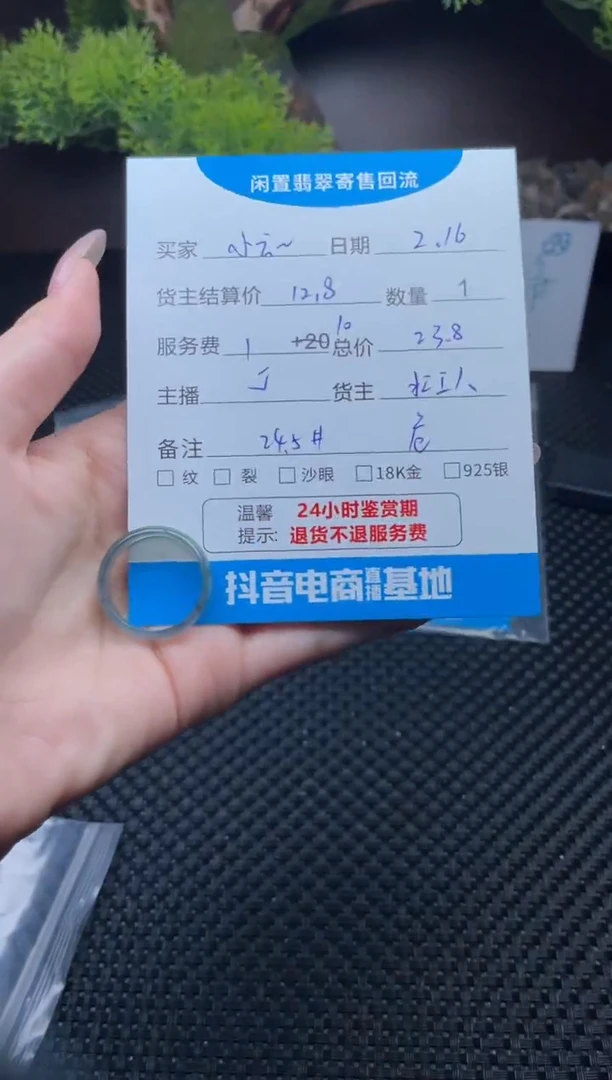 闲置翡翠寄售回流
买家 小云~ 日期 2.16
货主结算价 12.8 数量 1
服务费 1 +20 10 总价 23.8
主播 货主
备注 24.5# 危
纹 裂 沙眼 18K金 925银
温馨 24小时鉴赏期
提示: 退货不退服务费
抖音电商直播基地